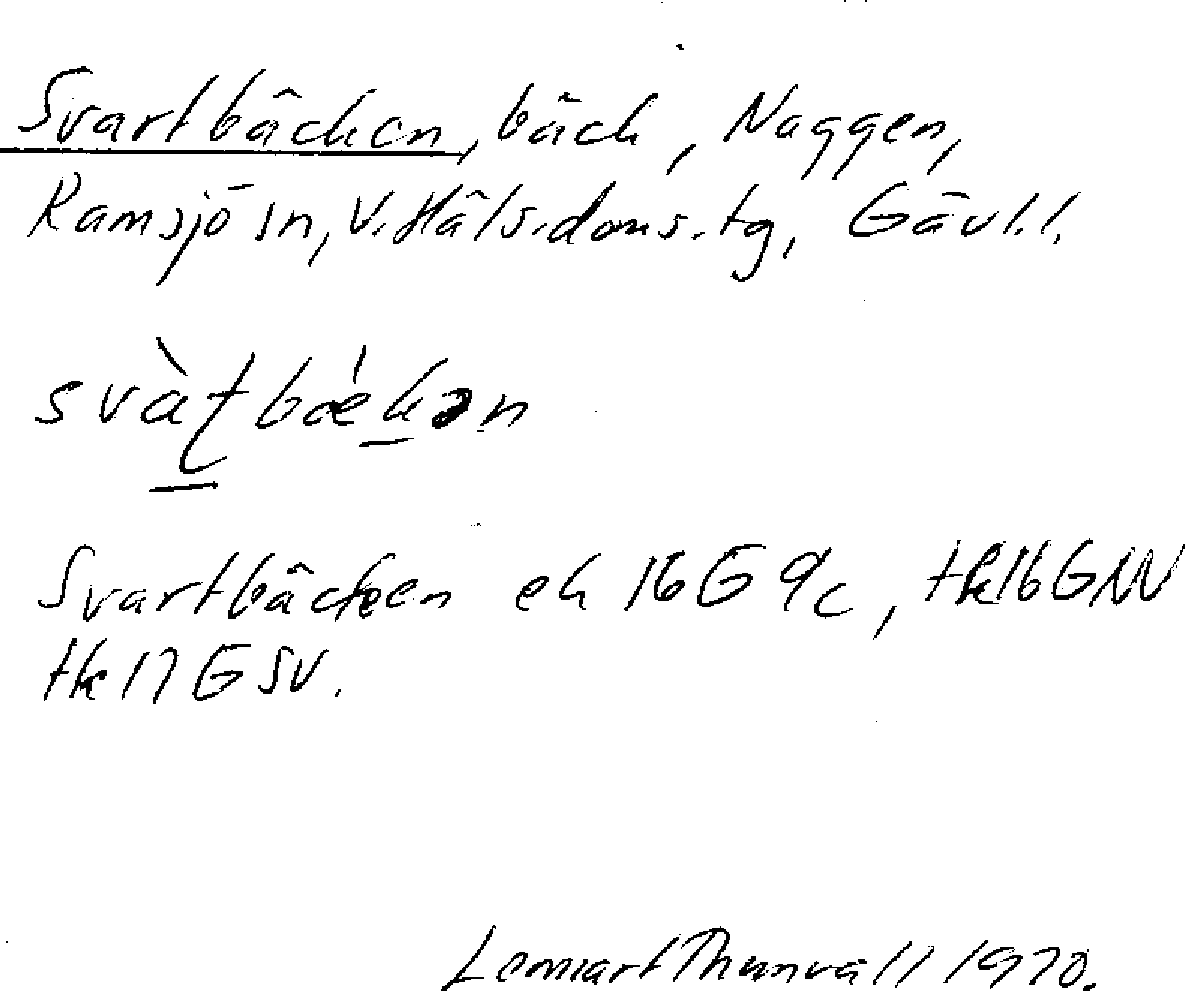 Svartbäcken, bäck, Naggen,
Ramsjö sn, V. Hälsidoms. tg, Gävl.l.
svàṭbæ̀kən
Svartbäcken ek 16G 9c, tk16GNV
tk17GSV.
Lennart Thunvall 1970.